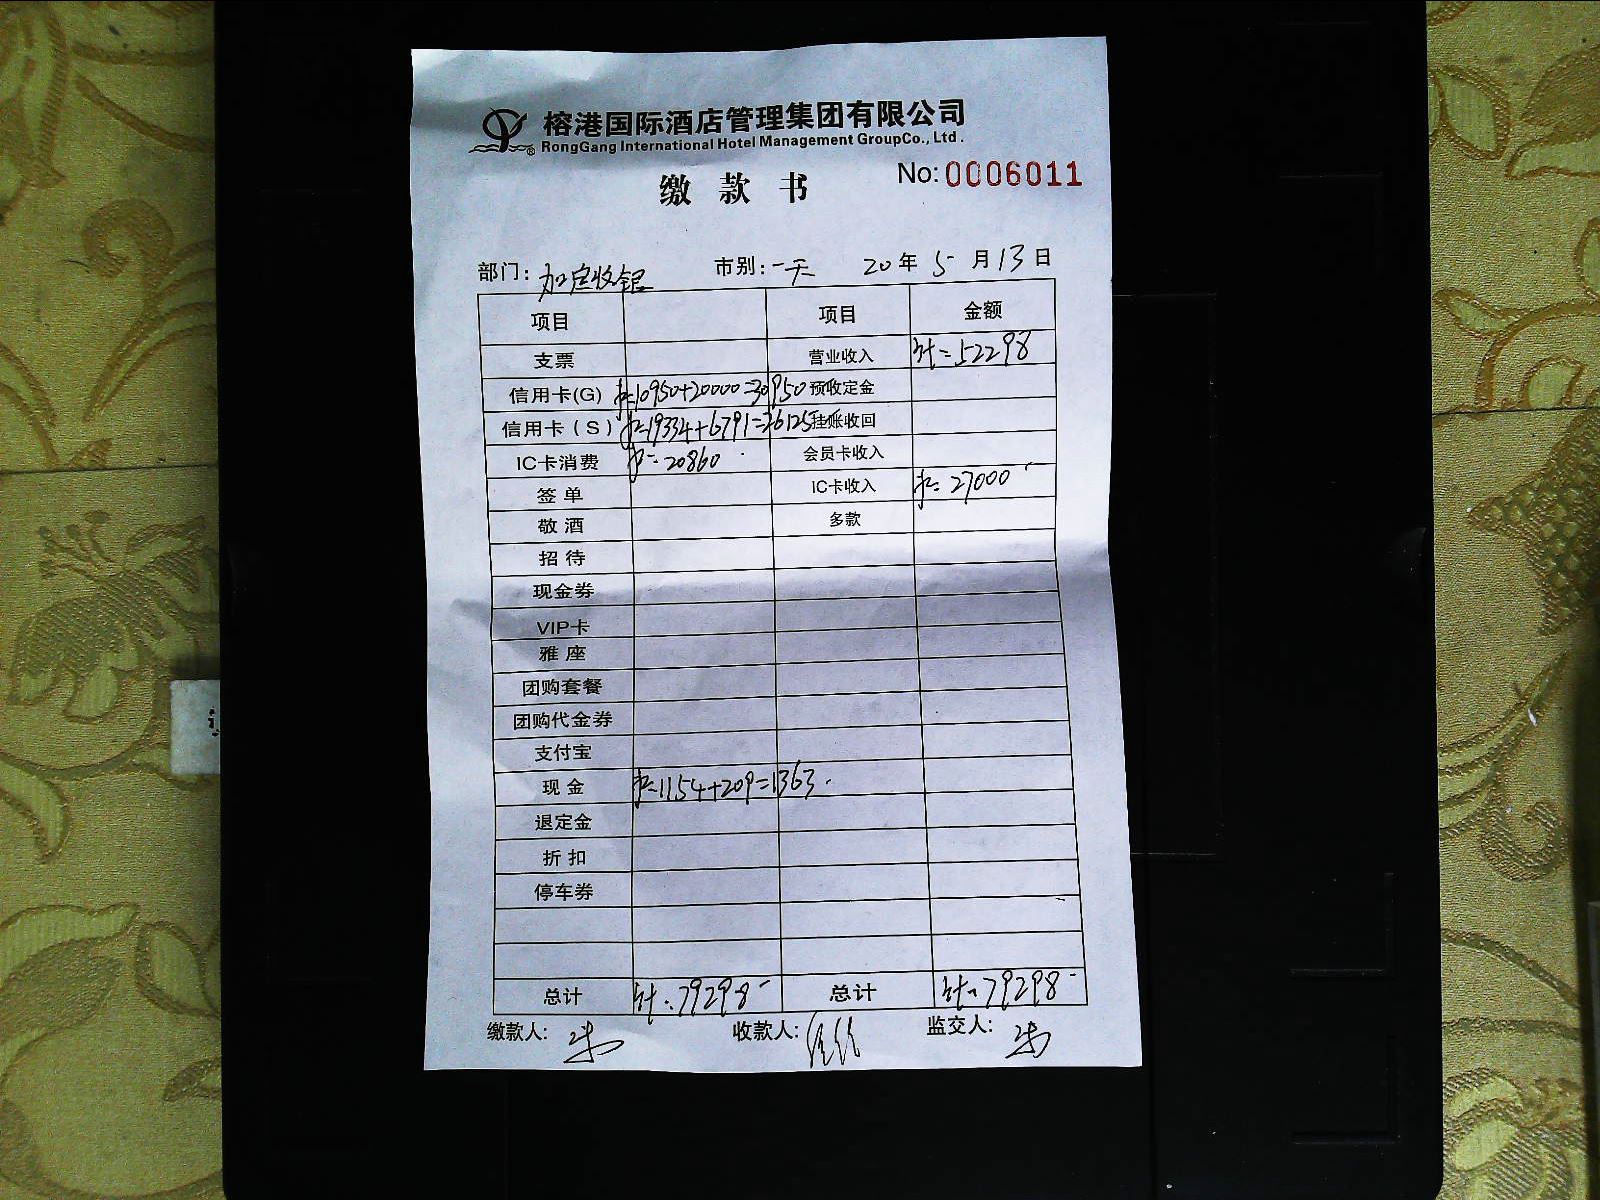 榕港国际酒店管理集团有限公司
RongGang International Hotel Management GroupCo., Ltd.
No:0006011
缴款书
部门: 加启收银 市别: 一天 20年5月13日
项目 项目 金额
支票 营业收入 计=52298
信用卡(G) 计=10950+20000=30950 预收定金
信用卡(S) 计=19334+6791=26125 挂账收回
IC卡消费 计=20860 会员卡收入
签单 IC卡收入 计=27000
敬酒 多款
招待
现金券
VIP卡
雅座
团购套餐
团购代金券
支付宝
现金 计=1154+209=1363
退定金
折扣
停车券
总计 计:79298 总计 计:79298
缴款人: 收款人: 监交人: